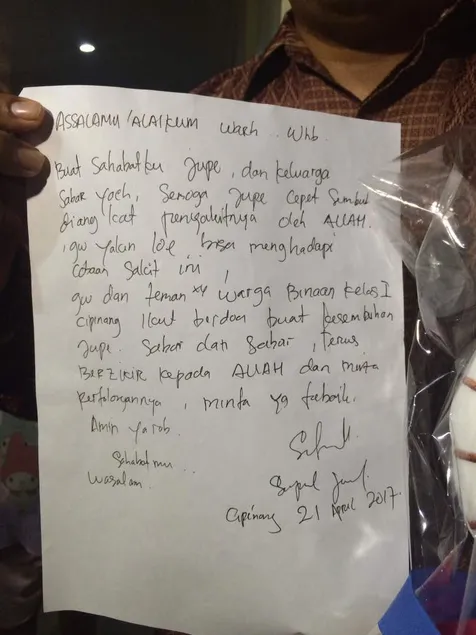 ASSALAMU 'ALAIKUM WARH.. WHb.
Buat Sahabatku Jupe, dan keluarga
Sabar yaeh, Semoga Jupe Cepet Sembuh
diangkat penyakitnya oleh ALLAH.
, gw yakin loe, bisa menghadapi
Cobaan Sakit ini,
gw dan teman xy warga Binaan kelas I
Cipinang Ikut berdoa buat kesembuhan
Jupe. Sabar dan Sabar, terus
BERZIKIR kepada ALLAH dan minta
pertolongannya, minta yg terbaik.
Amin ya rob.
Sahabatmu..
Wasalam.
Saipul Jamil
Cipinang 21 April 2017